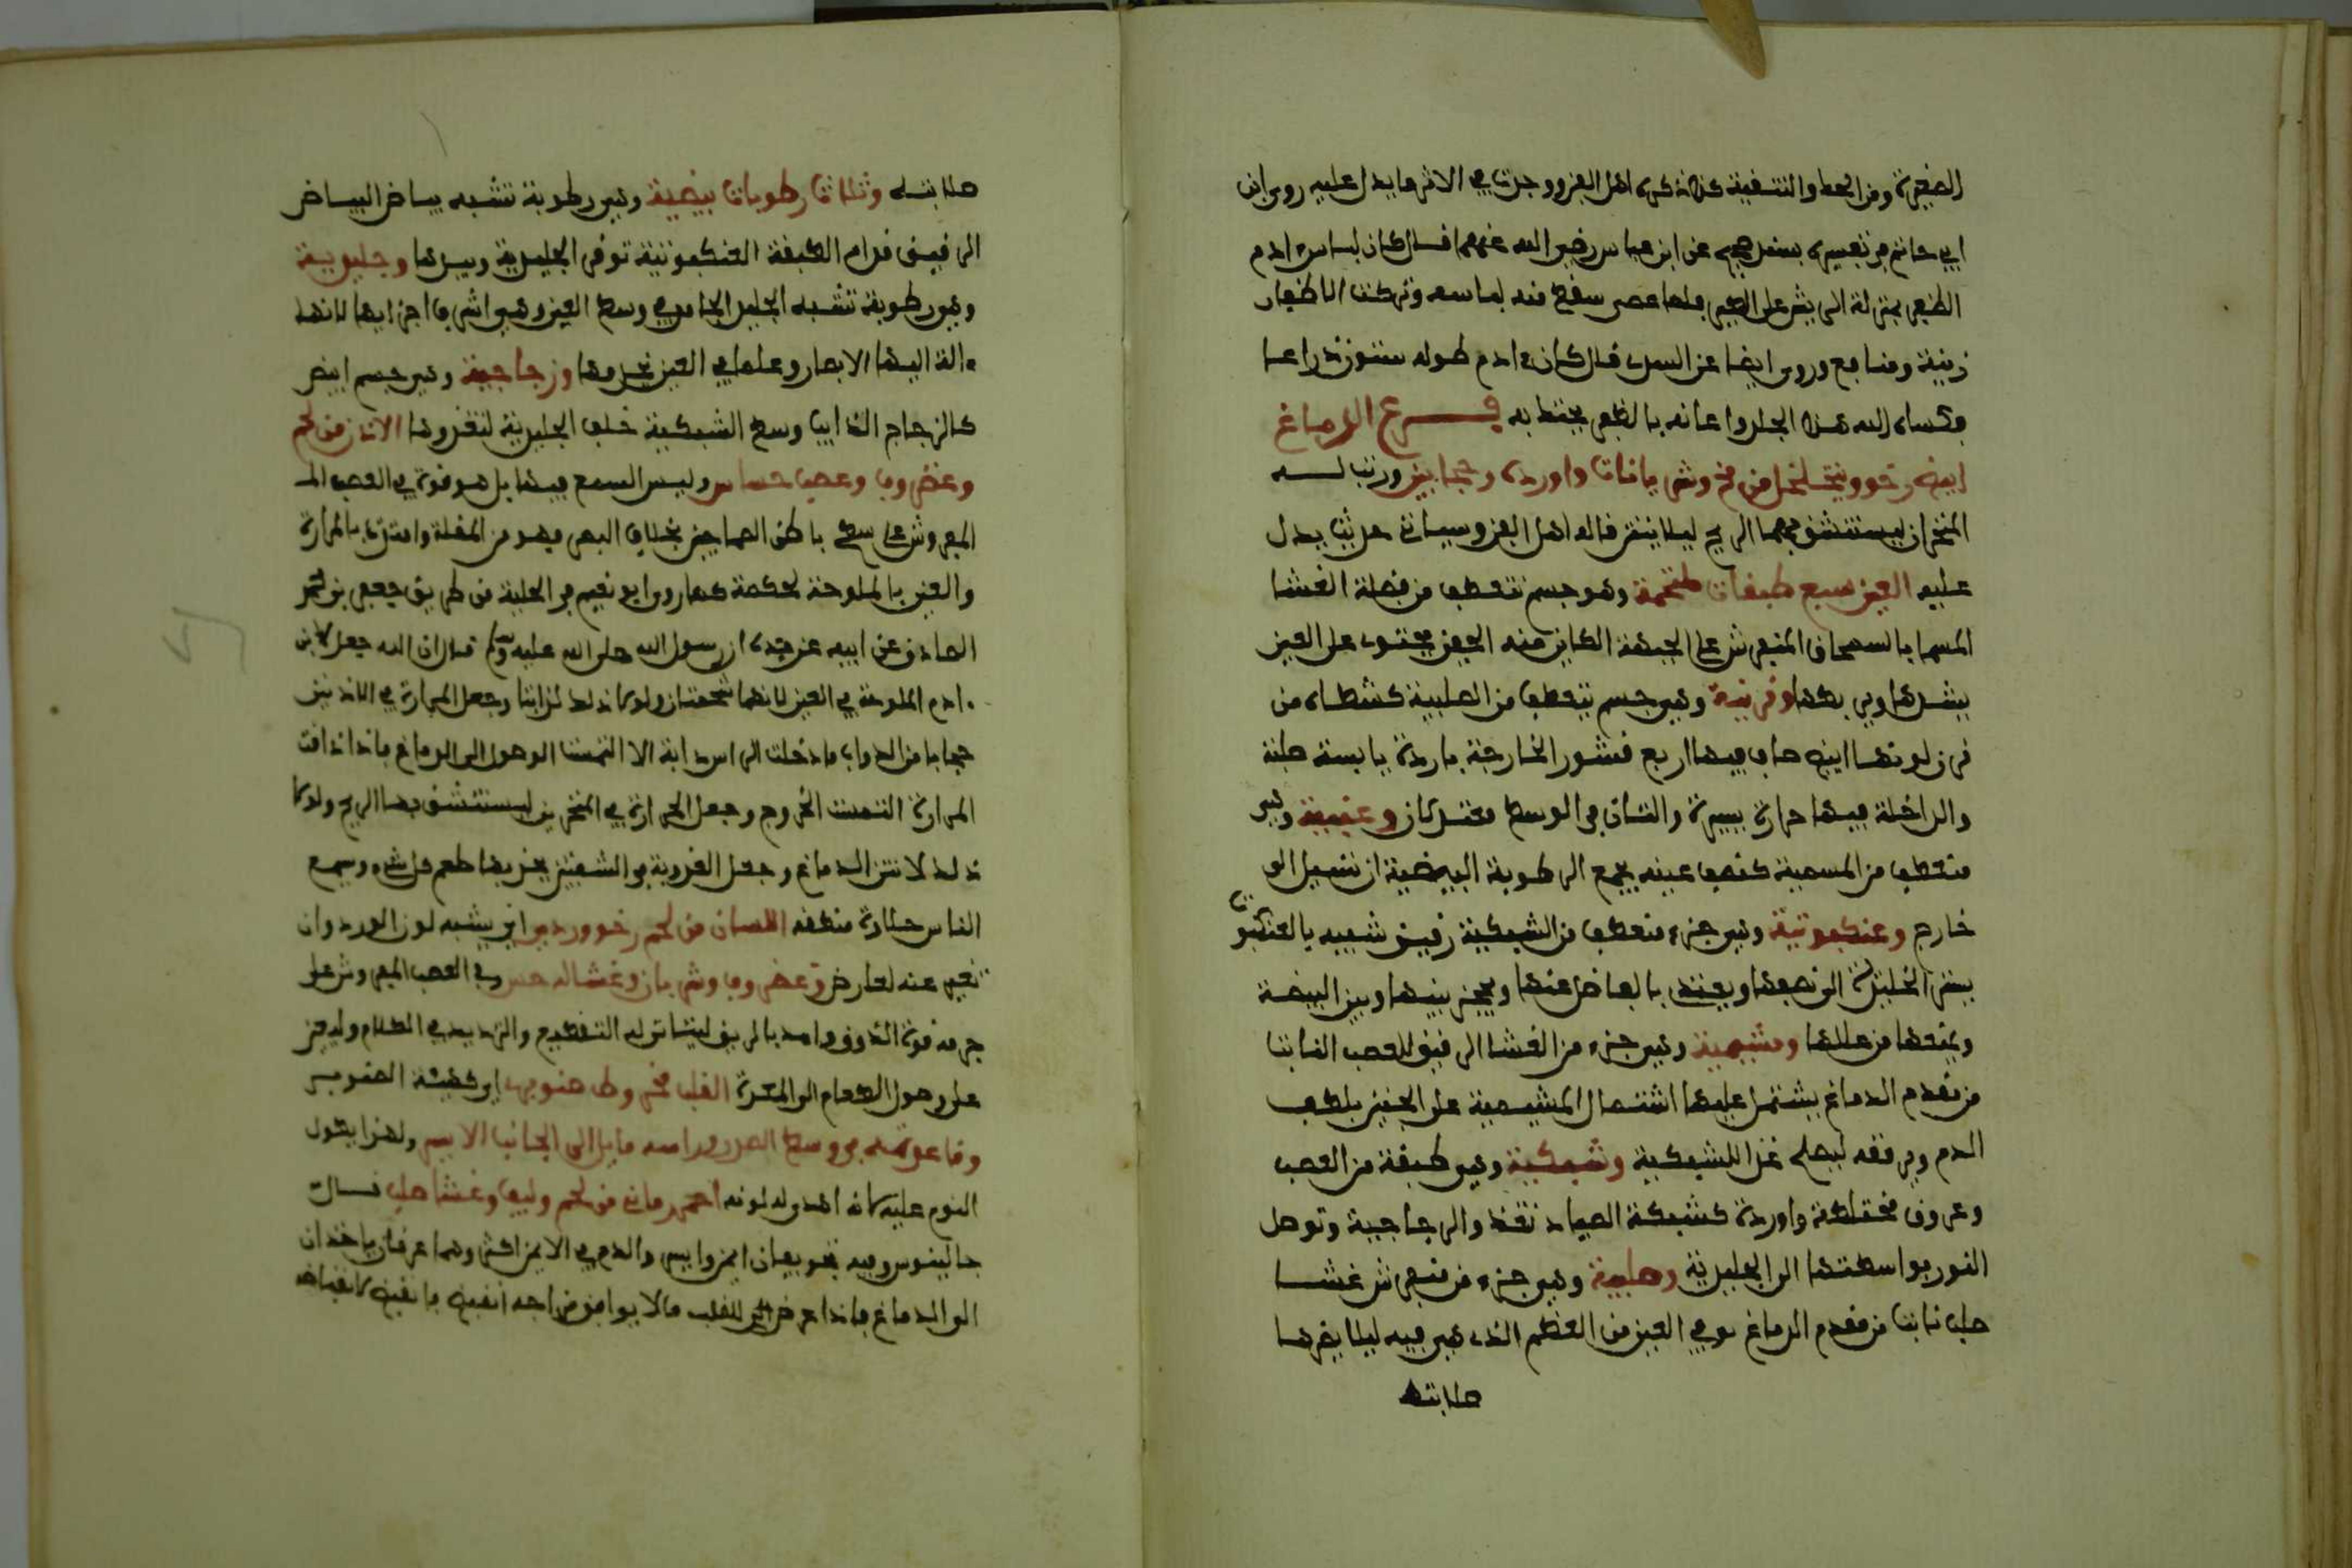 الصغيرة ومن الحط والتنقية هكذا ذكره اهل الفن ووجدت في الاثر ما يدل عليه روى ابن
ابي حاتم في تفسيره بسند صحيح عن ابن عباس رضي الله عنهما قال كان لباس ءادم
الظفر بمنزلة الريش على الطير فلما عصى سقط منه لباسه وتركت الاظفار
زينة ومنافع وروى ايضا عن السدي قال كان ءادم طوله ستون ذراعا
فكساه الله هذا الجلد واعانه بالظفر يحتك به فرع الدماغ
ابيض رخو متخلخل من مخ وشريانات واوردة وحجابين ورتب له
المنخران ليستنشق بهما الريح ليلا ينتن قاله اهل الفن وسياتي حديث يدل
عليه العين سبع طبقات ملتحمة وهو جسم تعطف من فضلة الغشا
المسما بالسمحاق المنفرش على الجبهة الكاين منه الجفن يحتوي على العين
يشدها ويربطها وقرنية وهي جسم ينعطف من الصلبية كشظاه من
قرن لونها ابيض صاف فيها اربع قشور الخارجة باردة يابسة صلبة
والداخلة فيها حرارة يسيرة والتان في الوسط معتدلتان وعنبية وهي
منعطف من المشيمية كنصف عنبه يجمع الرطوبة البيضية ان تسيل الى
خارج وعنكبوتية وهي جزء منعطف من الشبكية رقيق شبيه بالعنكبوت
بيضية وهي جزء من الغشا الرقيق للعصب النابت
من مقدم الدماغ يشتمل عليها اشتمال المشيمية على الجنين بلطف
الدم ويرققه ليصلح غذا للشبكية وشبكية وهي طبقة من العصب
وعروق مختلطة واوردة كشبكة الصياد تغذ والزجاجية وتوصل
النور بواسطتها الى الجليدية وصلبية وهي جزء من منفرش غشا
صلب نابت من مقدم الدماغ يوقي العين من العظم الذي هي فيه ليلا يضرها
صلابته
صلابته وثلاث رطوبات بيضية وهي رطوبة تشبه بياض البياض
الرقيق قدام الطبقة العنكبوتية توقى الجليدية وبينها وجليدية
وهي رطوبة تشبه الجليد الجامد في وسط العين وهي اشرف اجزايها لانها
ءالة اليها الابصار وعلما في العين تخدمها وزجاجية وهي جسم ابيض
كالزجاج الذايب وسط الشبكية خلف الجليدية لتغذوها الاذن من لحم
وغضروف وعصب حساس وليس السمع فيها بل هو قوة في العصب الم
المفروش على سطح باطن الصماخين بخلاف البصر فهو من المقلة وامتزجا بالمرارة
والعين بالملوحة لحكمة كما روى ابو نعيم في الحلية من طريق جعفر بن محمد
الصادق عن ابيه عن جده ان رسول الله صلى الله عليه وسلم قال ان الله جعل لابن
ءادم الملوحة في العين لانهما شحمتان ولولا ذلك لذابتا وجعل المرارة في الاذنين
حجابا من الدواب ما دخلت الراس دابة الا التمست الوصول الى الدماغ فاذا ذاقت
المرارة التمست الخروج وجعل الحرارة في المنخرين ليستنشق بها الريح ولولا
ذلك لانتن الدماغ وجعل العذوبة في الشفتين يجد بها طعم كل شيء ويسمع
الناس حلاوة منطقه اللسان من لحم رخو وردي اي يشبه لون الورد وان
تغير عنه لعارض وغضروف وشريان وغشا له حس وفي العصب المفروش على
جرمه قوة الذوق وامد بالريق ليتاتى له التقطيع والترديد في الكلام وليعين
على وصول الطعام الى المعدة القلب مخروط صنوبري اي كهيئة الصنوبر
وقاعدته في وسط الصدر وراسه مايل الى الجانب الايسر ولهذا يقول
النوم عليه لانه اهدى له لونه احمر رماني من لحم وليف وغشا صلب قال
جالينوس وفيه تجويفان ايمن وايسر والدم في الايمن اكثر وهما عرقان ياخذان
الى الدماغ فاذا عرض للقلب ما لا يوافق مزاجه انقبض فانقبض لانقباضه